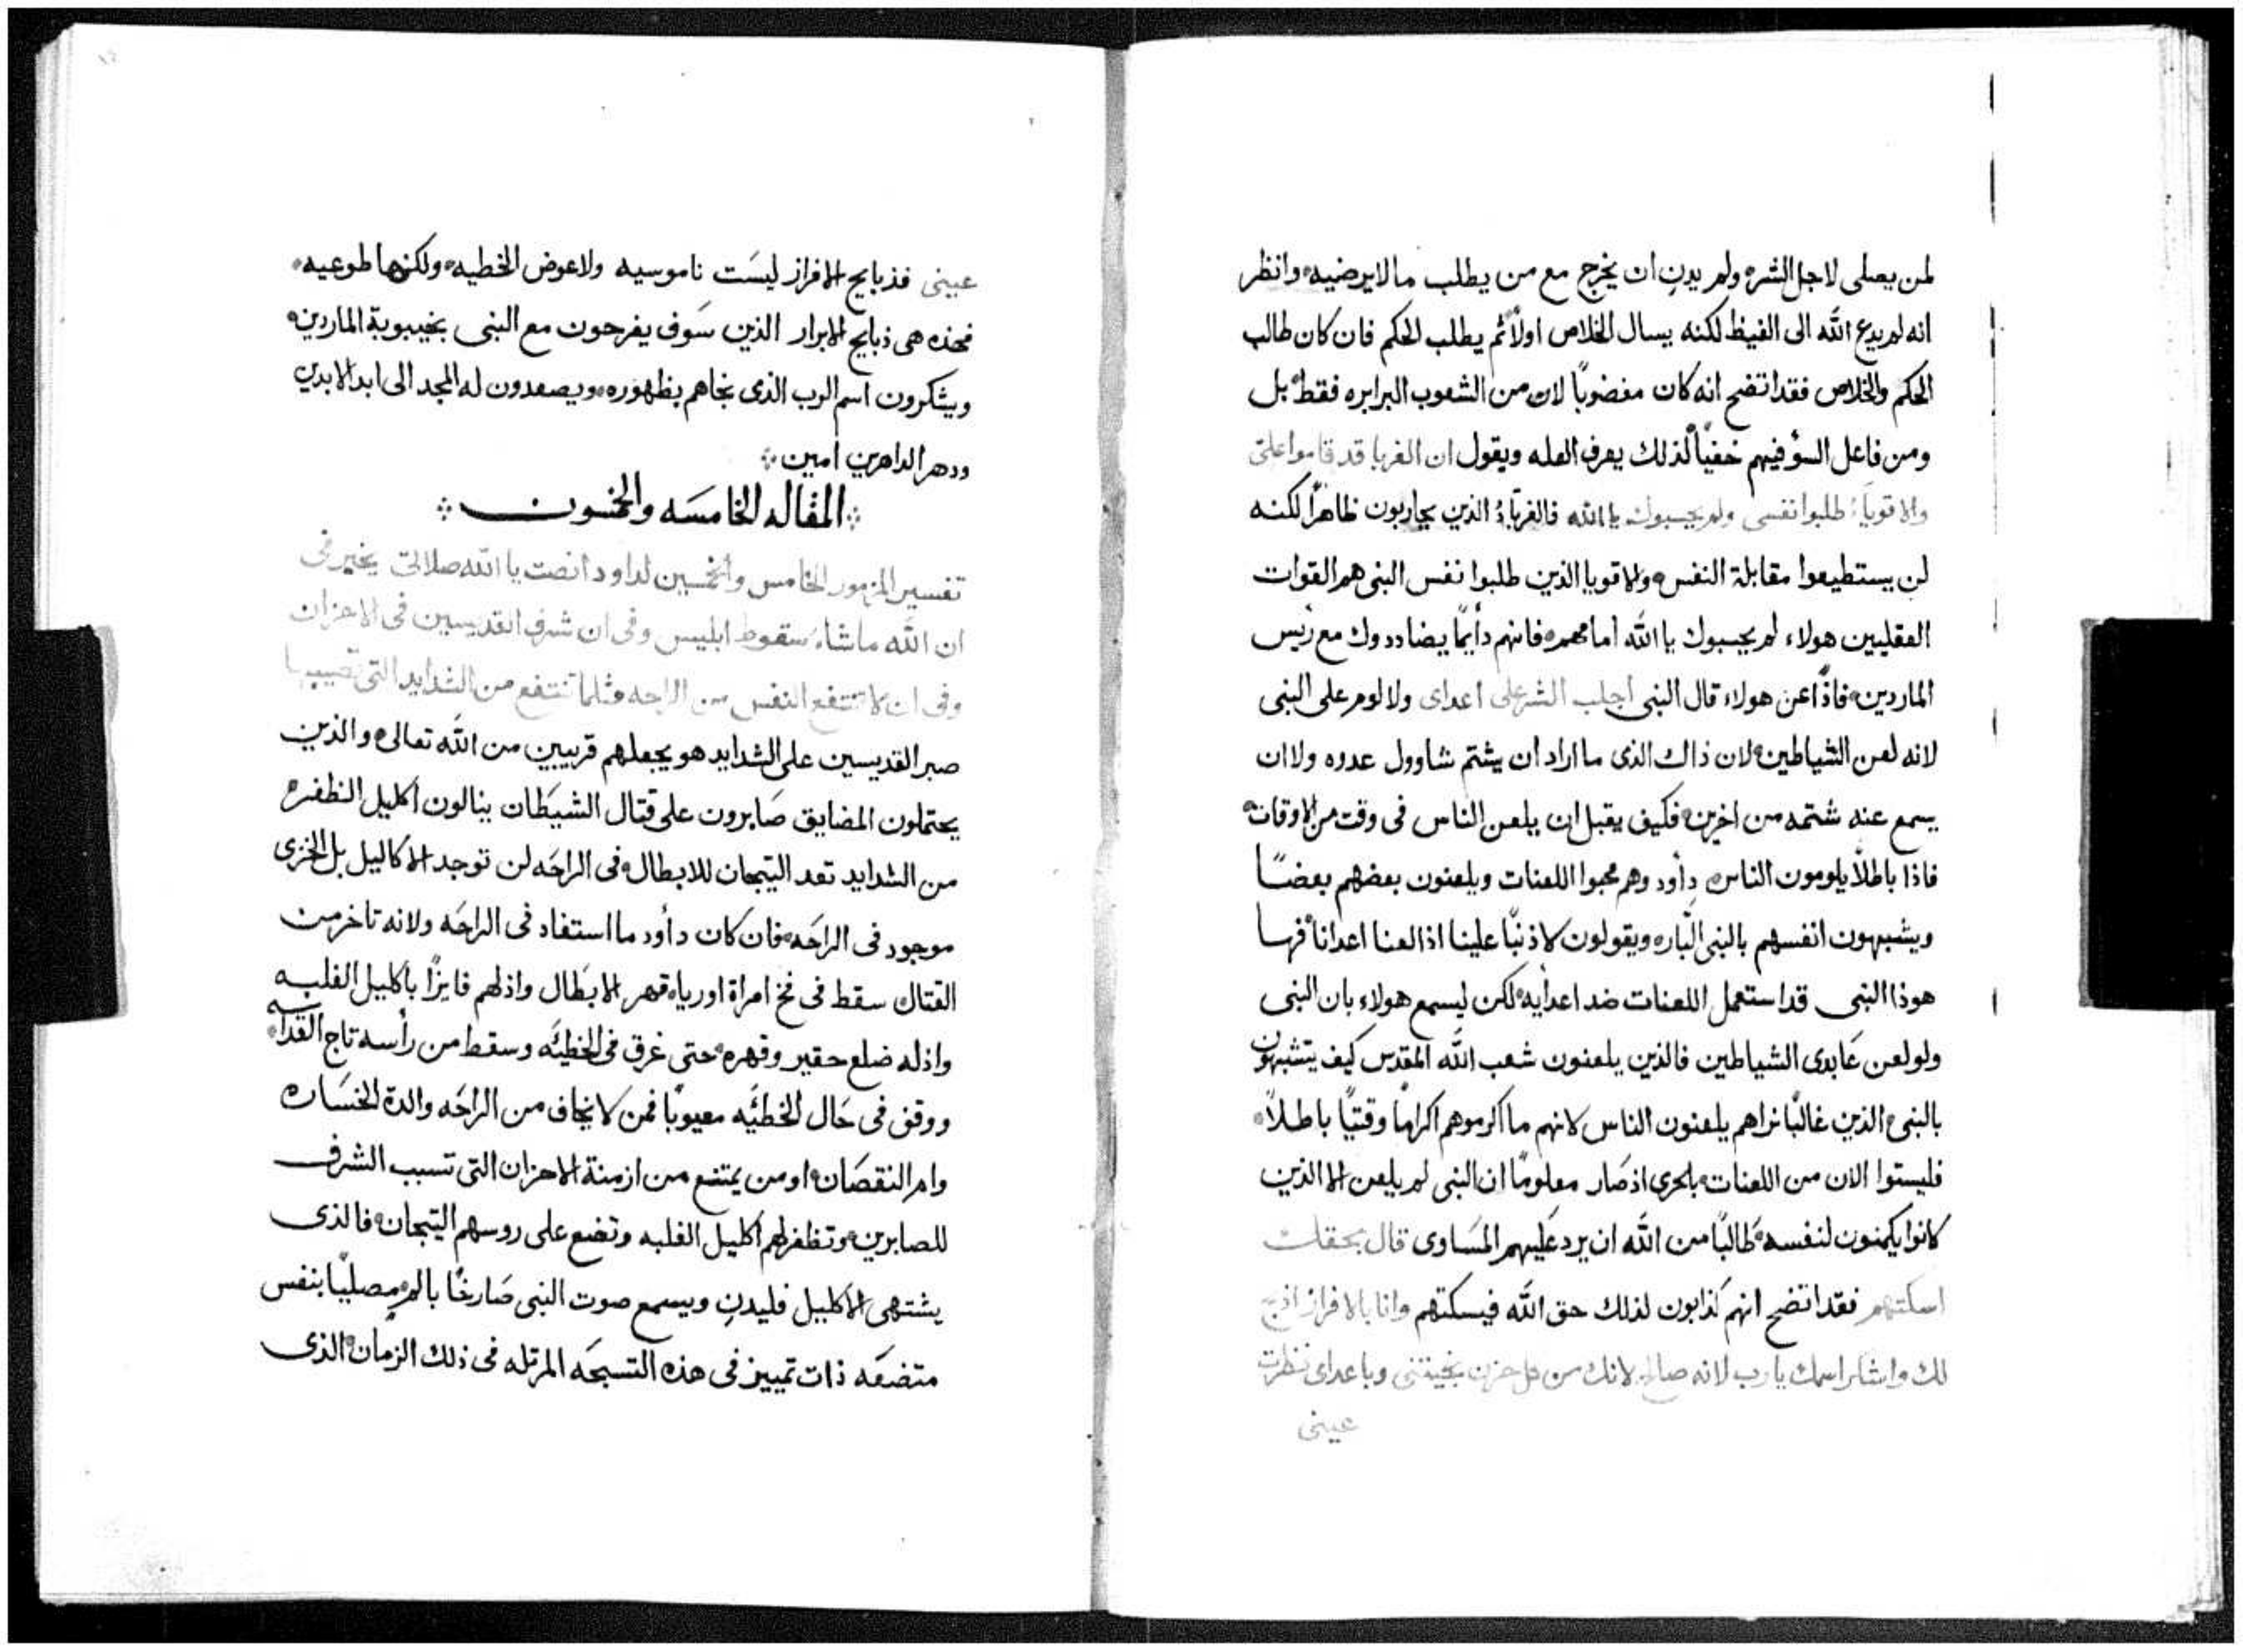 لمن يصلى لاجل الشره ولم يدن ان يخرج مع من يطلب ما لا يرضيه وانظر
انه لم يدع الله الى الغيظ لكنه يسال الخلاص اولاً ثم يطلب الحكم فان كان طالب
الحكم والخلاص فقد اتضح انه كان مغضوباً لان من الشعوب البرابره فقط بل
ومن فاعل السؤ فيهم خفياً لذلك يعرف العله ويقول ان الغربا قد قاموا علىّ
والاقوياء طلبوا نفسى ولم يحسبوك يا الله فالغرباءُ الذين يحاربون ظاهراً لكنه
لن يستطيعوا مقابلة النفس والاقويا الذين طلبوا نفس النبى هم القوات
العقليين هولاء لم يحسبوك يا الله امامهم فانهم دأيماً يضاددوك مع رئيس
الماردين فاذاً عن هولاء قال النبى اجلب الشر على اعداى ولا لوم على النبى
لانه لعن الشياطين لان ذاك الذى ما اراد ان يشتم شاوول عدوه ولا ان
يسمع عنه شتمه من اخرين فكيف يقبل ان يلعن الناس فى وقت من الاوقات
فاذا باطلاً يلومون الناس دأود وهم محبوا اللعنات ويلعنون بعضهم بعضاً
ويشبهون انفسهم بالنبى البّار ويقولون لا ذنباً علينا اذا لعنا اعدانا فها
هوذا النبى قد استعمل اللعنات ضد اعدأيه لكن ليسمع هولاء بان النبى
ولو لعن عَابدى الشياطين فالذين يلعنون شعب الله المقدس كيف يتشبهون
بالنبى الذين غالباً نراهم يلعنون الناس لانهم ما اكرموهم اكراماً وقتياً باطلاً
فليستوا الان من اللعنات بلحرى اذ صَار معلوماً ان النبى لم يلعن الا الذين
كانوا يكمنون لنفسه طَالباً من الله ان يرد عَليهم المسَاوى قال بحقك
اسكتهم فقد اتضح انهم كذابون لذلك حق الله فيسكتهم وانا بالافراز اذبح
لك واشكر اسمك يا رب لانه صالح لانك من كل حزن نجيتنى وباعداى نظرت
عينى
عينى فذبايح الافراز ليسَت ناموسيه ولا عوض الخطيه ولكنها طوعيه
فهذه هى ذبايح الابرار الذين سَوف يفرحون مع النبى بخيبوبة الماردين
ويشكرون اسم الرب الذى نجاهم بظهوره ويصعدون له المجد الى ابد الابدين
ودهر الداهرين امين
المقاله الخامسَه والخمسون
تفسير المزمور الخامس والخمسين لداود انصت يا الله صلاتى يخبر فى
ان الله ما شاء سقوط ابليس وفى ان شرف القديسين فى الاحزان
وفى ان لا تنتفع النفس من الراحه مثلما تنتفع من الشدايد التى تصيبها
صبر القديسين على الشدايد هو يجعلهم قريبين من الله تعالى والذين
يحتملون المضايق صَابرون على قتال الشيَطان ينالون اكليل الظفر
من الشدايد تعد التيجان للابطال فى الراحَه لن توجد الاكاليل بل الخزى
موجود فى الراحَه فان كان دأود ما استفاد فى الراحَه ولانه تاخر من
القتال سقط فى فخ امراة اوريا قهر الابَطال واذلهم فايزاً باكليل الغلبه
واذله ضلع حقير وقهره حتى غرق فى الخطيَه وسقط من رأسه تاج القداسه
ووقف فى حَال الخطيَه معيوباً فمن لا يخاف من الراحَه والدة الخسَاره
وام النقصَان او من يمتنع من ازمنة الاحزان التى تسبب الشرف
للصابرين وتظفر لهم اكليل الغلبه وتضع على روسهم التيجان فالذى
يشتهى الاكليل فليدن ويسمع صوت النبى صَارخاً بالم مصلياً بنفس
متضعَه ذات تمييز فى هذه التسبحَه المرتله فى ذلك الزمان الذى